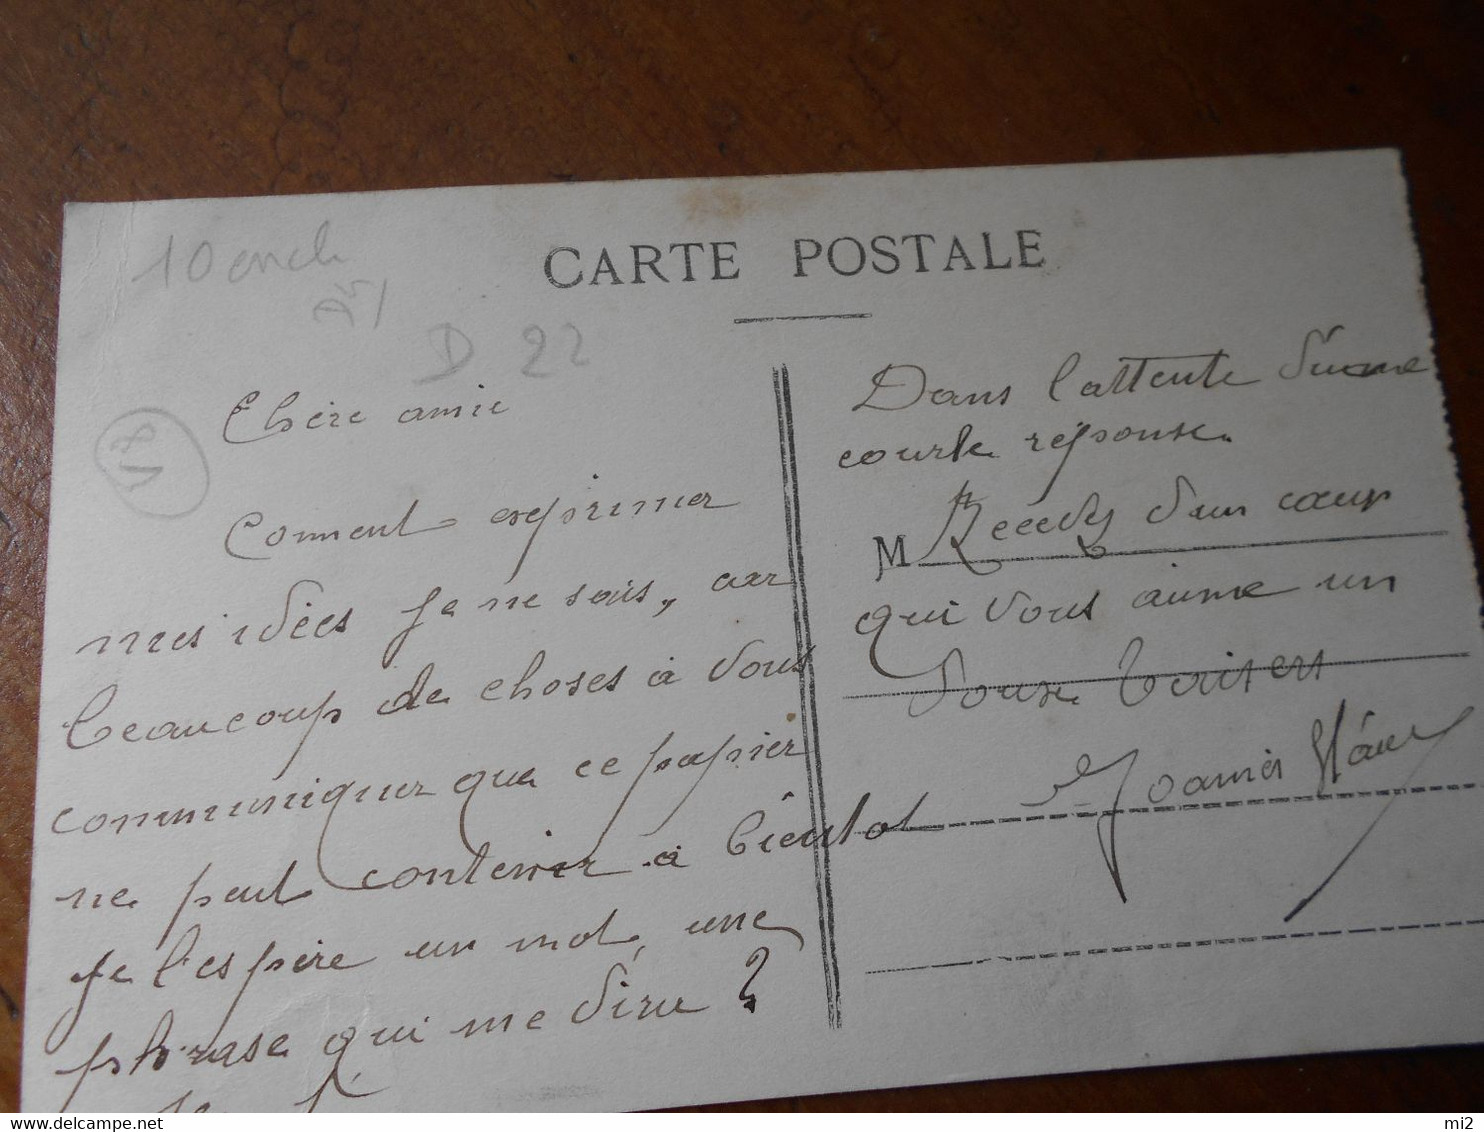 CARTE POSTALE
D 22
V8
Chère amie
Comment exprimer
mes idées je ne sais, car
beaucoup de choses à vous
communiquer que ce papier
ne peut contenir à bientot
je l'espère un mot, une
phrase qui me dira ?
Dans l'attente d'une
courte réponse.
M Recevez d'un cœur
qui vous aime un
doux baisers
Joannès
mi2